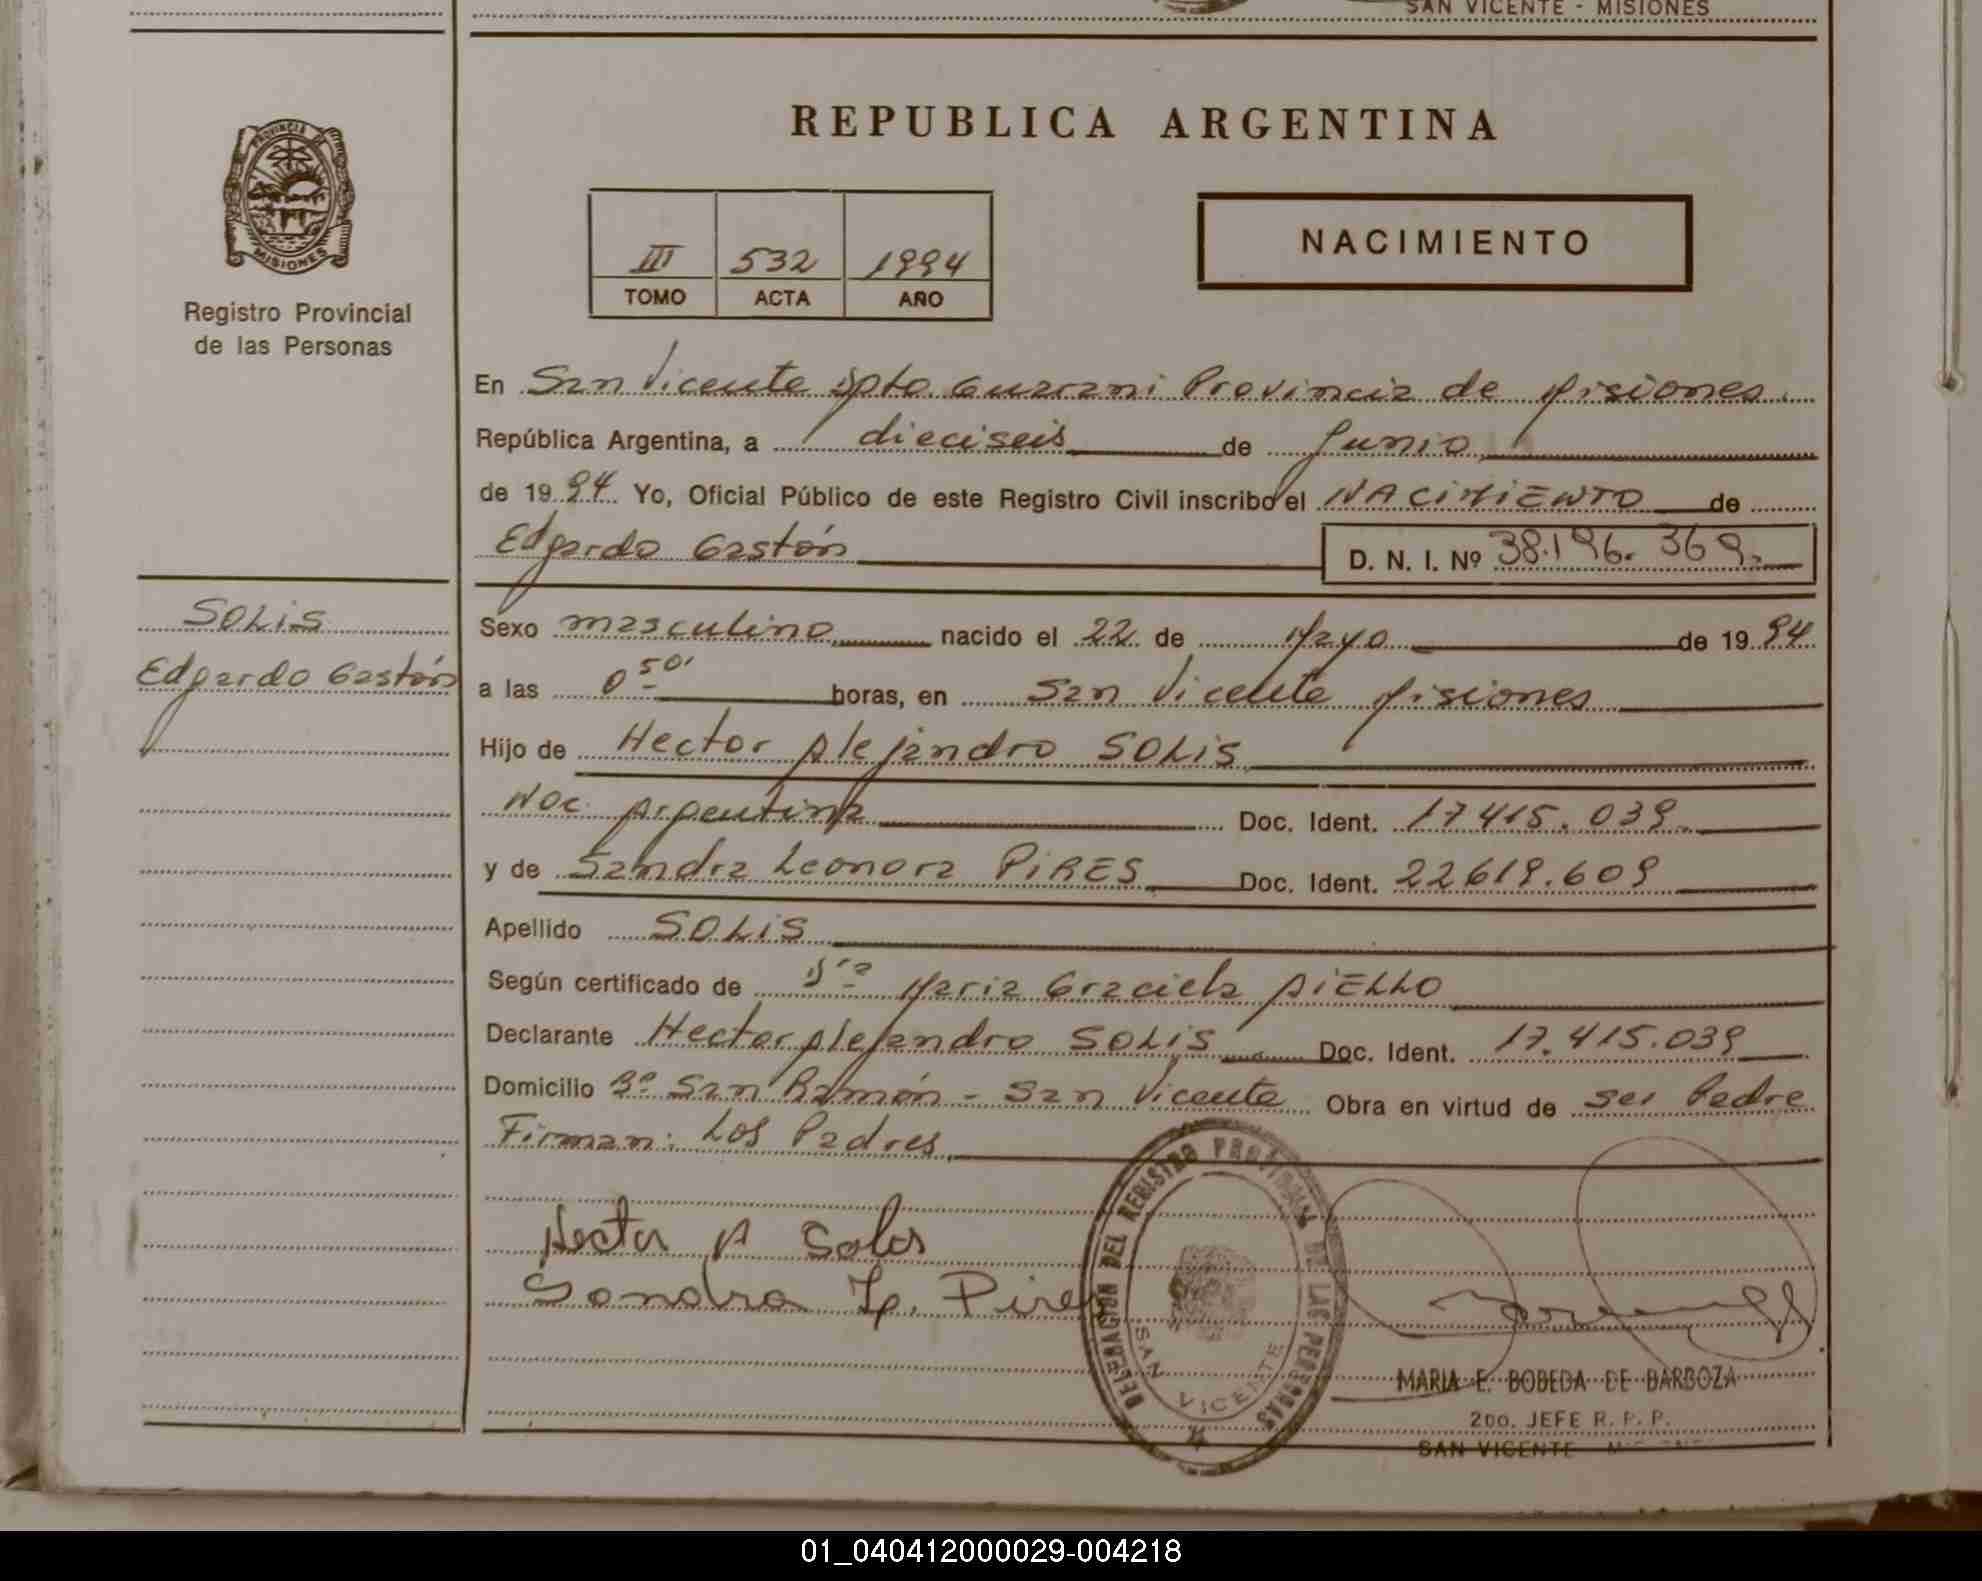 SAN VICENTE - MISIONES
REPUBLICA ARGENTINA
PROVINCIA DE
MISIONES
Registro Provincial
de las Personas
III 532 1994
TOMO ACTA AÑO
NACIMIENTO
En San Vicente Dpto. Guarani Provincia de Misiones.
República Argentina, a dieciseis de Junio
de 1994 Yo, Oficial Público de este Registro Civil inscribo el NACIMIENTO de
Edgardo Gastón D. N. I. Nº 38.196.369.
SOLIS
Edgardo Gastón
Sexo masculino nacido el 22 de Mayo de 1994
a las 0 50' horas, en San Vicente Misiones
Hijo de Hector Alejandro SOLIS
Nac. Argentina Doc. Ident. 17415.039.
y de Sandra Leonora PIRES Doc. Ident. 22619.609
Apellido SOLIS
Según certificado de Dra Maria Graciela AIELLO
Declarante Hector Alejandro SOLIS Doc. Ident. 17.415.039
Domicilio Bº San Ramón - San Vicente Obra en virtud de ser Padre
Firman: Los Padres
Hector A Solis
Sandra L. Pires
DELEGACION DEL REGISTRO PROVINCIAL DE LAS PERSONAS
SAN VICENTE
MARIA E. BOBEDA DE BARBOZA
2do. JEFE R. P. P.
SAN VICENTE
01_040412000029-004218